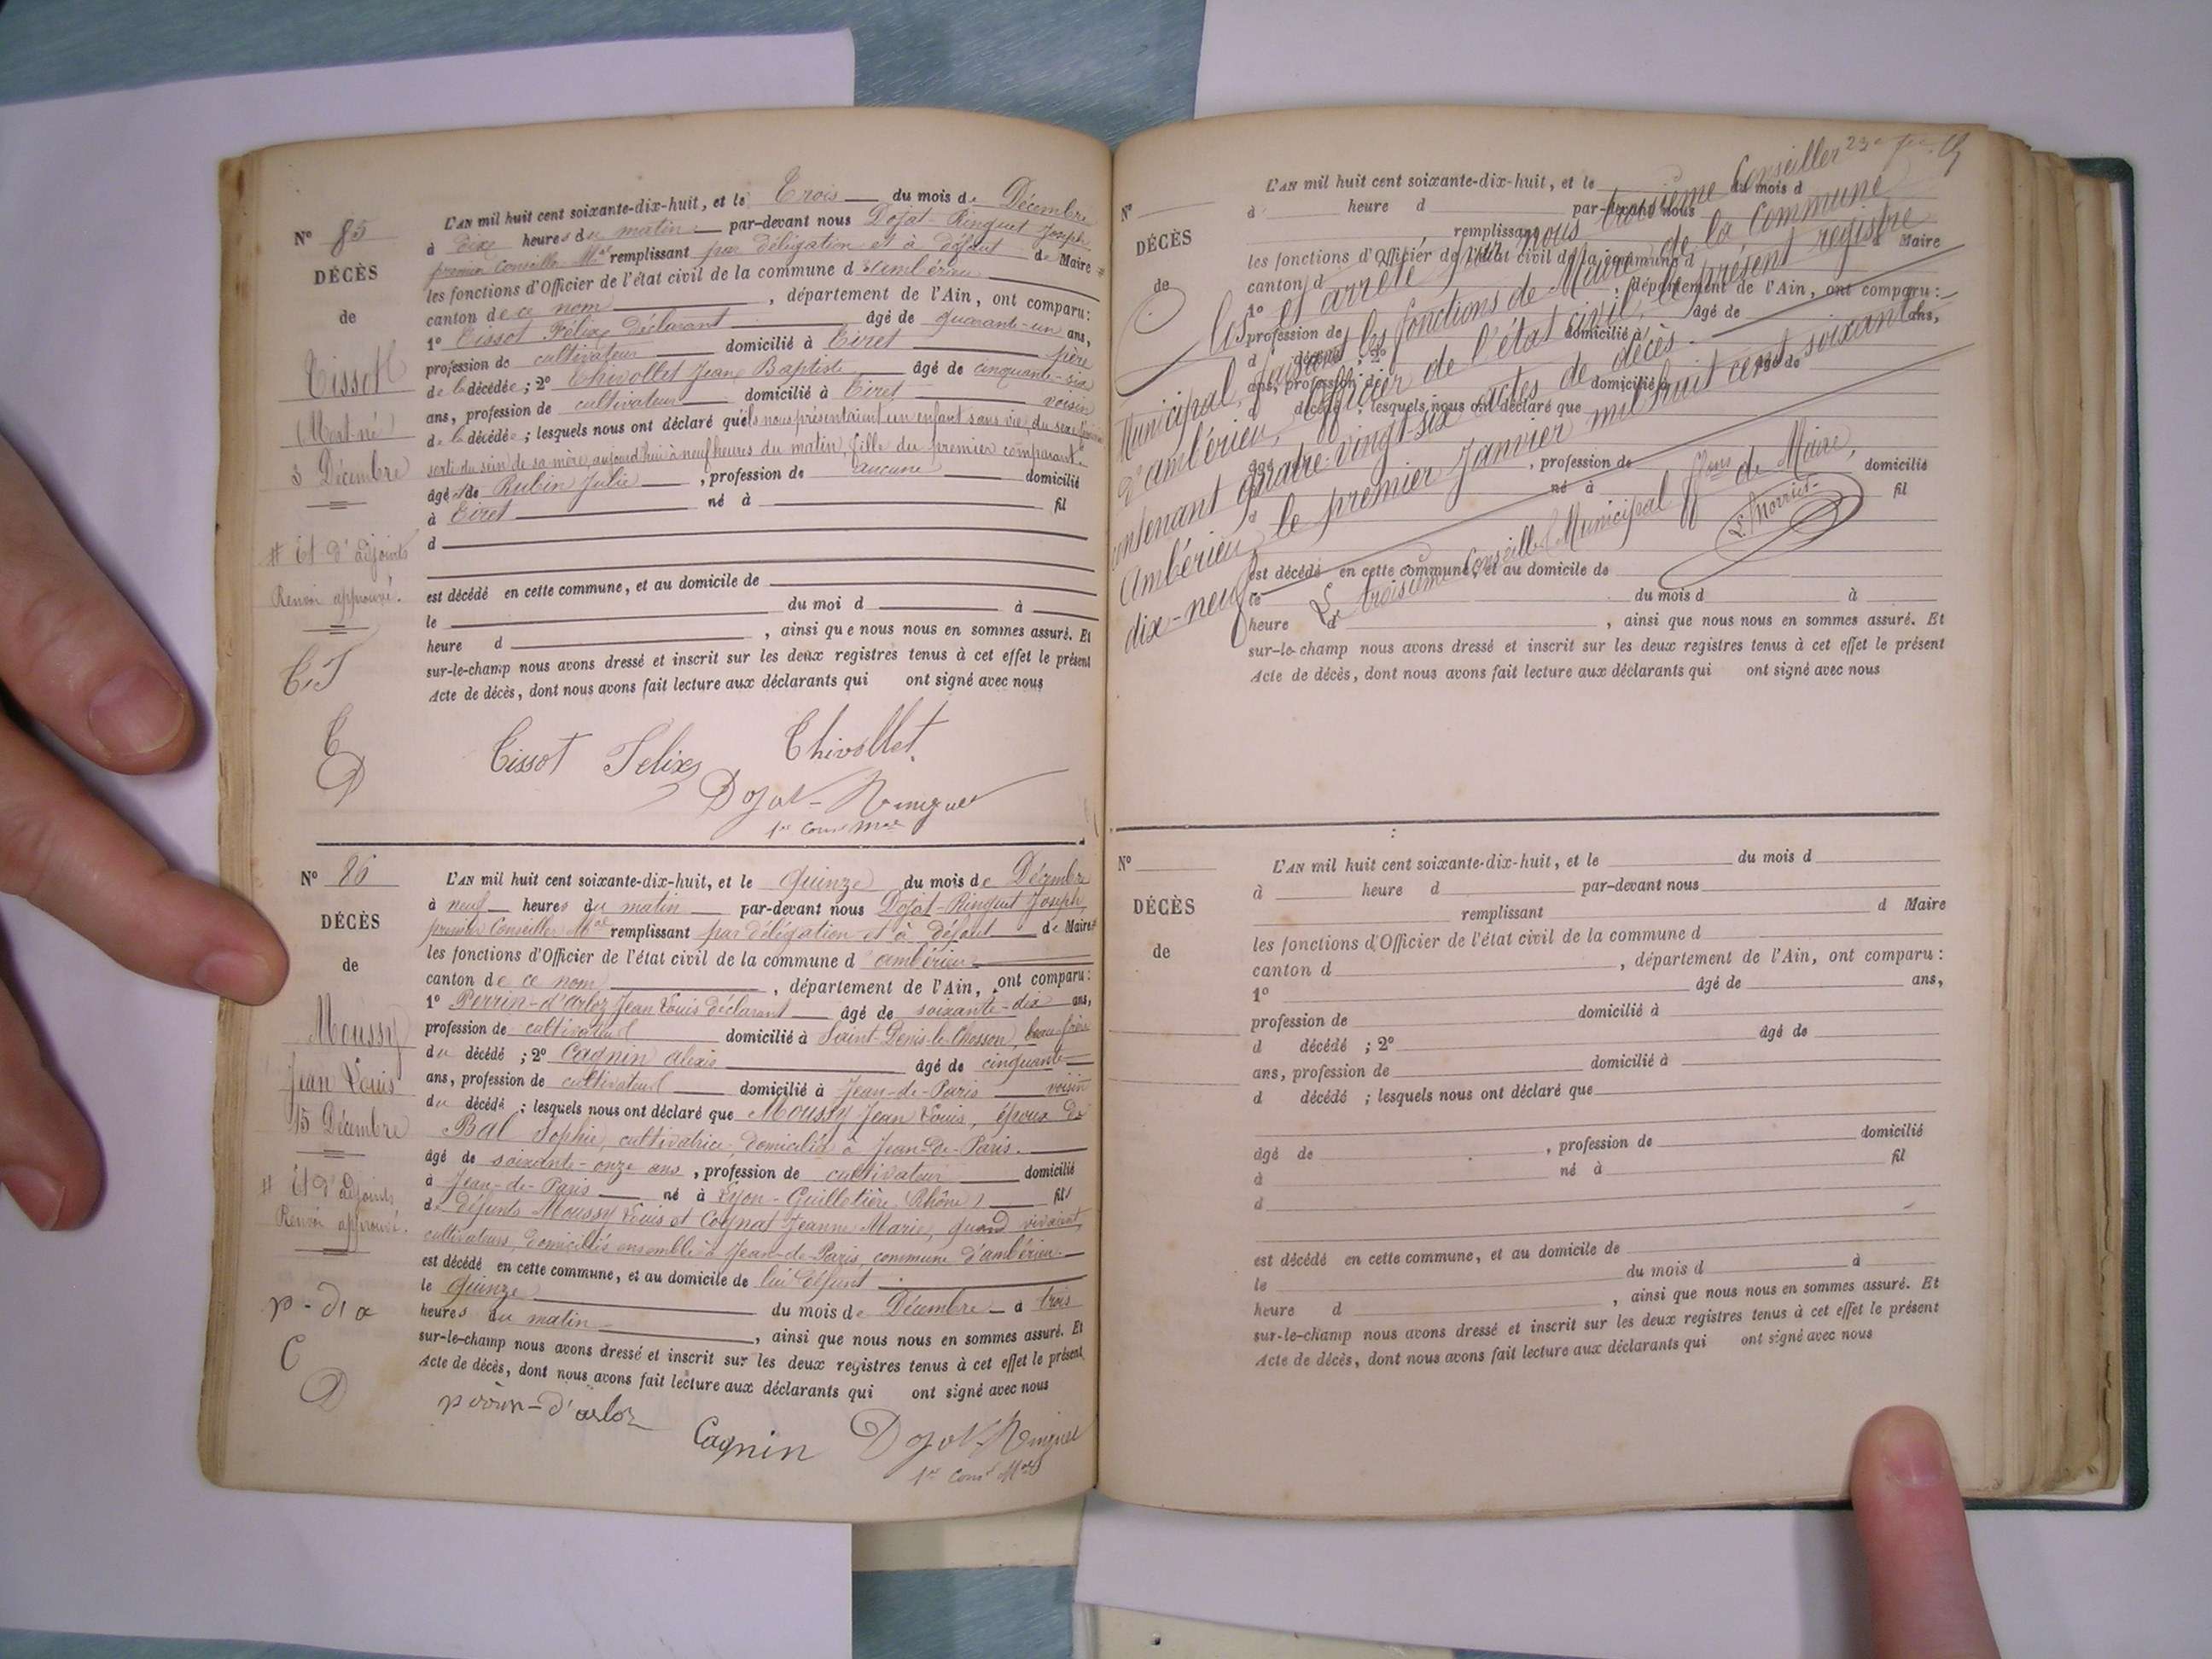 N° 85
DÉCÈS
de
Tissot
(Mort-né)
3 Décembre
# Et d'adjoints
Renvoi approuvé.
T.F
T
D
L'AN mil huit cent soixante-dix-huit, et le Trois du mois de Décembre
à dix heures du matin par-devant nous Dojat-Ringuet Joseph,
premier Conseiller Mal remplissant par délégation et à défaut de Maire #
les fonctions d'Officier de l'état civil de la commune d'Ambérieu
canton de ce nom, département de l'Ain, ont comparu:
1° Tissot Félix, Déclarant âgé de quarante-un ans,
profession de cultivateur domicilié à Tiret père
de la décédée; 2° Thivollet Jean Baptiste âgé de cinquante-six
ans, profession de cultivateur domicilié à Tiret voisin
de la décédée; lesquels nous ont déclaré qu'ils nous présentaient un enfant sans vie, du sexe féminin
sorti du sein de sa mère, aujourd'hui à neuf heures du matin, fille du premier comparant et
âgé de Rubin Julie, profession de aucune domicilié
à Tiret né à fil
d
est décédé en cette commune, et au domicile de
le du moi d à
heure d, ainsi que nous nous en sommes assuré. Et
sur-le-champ nous avons dressé et inscrit sur les deux registres tenus à cet effet le présent
Acte de décès, dont nous avons fait lecture aux déclarants qui ont signé avec nous
Tissot Felix Thivollet
Dojat-Ringuet
1er Conser Mal
N° 86
DÉCÈS
de
Moussy
Jean Louis
15 Décembre
# Et d'adjoints
Renvoi approuvé.
p-d'a
C
D
L'AN mil huit cent soixante-dix-huit, et le Quinze du mois de Décembre
à neuf heures du matin par-devant nous Dojat-Ringuet Joseph,
premier Conseiller Mal remplissant par délégation et à défaut de Maire #
les fonctions d'Officier de l'état civil de la commune d'Ambérieu
canton de ce nom, département de l'Ain, ont comparu:
1° Perrin-d'arloz Jean Louis déclarant âgé de soixante-dix ans,
profession de cultivateur domicilié à Saint-Denis-le-Chosson, beau-frère
du décédé; 2° Cagnin Alexis âgé de cinquante
ans, profession de cultivateur domicilié à Jean-de-Paris voisin
du décédé; lesquels nous ont déclaré que Moussy Jean Louis, époux de
Bal Sophie, cultivatrice, domiciliée à Jean-de-Paris.
âgé de soixante-onze ans, profession de cultivateur domicilié
à Jean-de-Paris né à Lyon-Guilletière (Rhône) fils
de défunts Moussy Louis et Cognat Jeanne Marie, quand vivaient,
cultivateurs, domiciliés ensemble à Jean-de-Paris, commune d'ambérieu.
est décédé en cette commune, et au domicile de lui défunt
le Quinze du mois de Décembre à trois
heures du matin, ainsi que nous nous en sommes assuré. Et
sur-le-champ nous avons dressé et inscrit sur les deux registres tenus à cet effet le présent
Acte de décès, dont nous avons fait lecture aux déclarants qui ont signé avec nous
perrin-d'arloz
Cagnin Dojat-Ringuet
1er Conser Mal
N°
DÉCÈS
de
L'AN mil huit cent soixante-dix-huit, et le du mois d
à heure d par-devant nous
remplissant d Maire
les fonctions d'Officier de l'état civil de la commune d
canton d, département de l'Ain, ont comparu:
1° âgé de ans,
profession de domicilié à
d décédé; 2° âgé de
ans, profession de domicilié à
d décédé; lesquels nous ont déclaré que
âgé de, profession de domicilié
à né à fil
d
est décédé en cette commune, et au domicile de
le du mois d à
heure d, ainsi que nous nous en sommes assuré. Et
sur-le-champ nous avons dressé et inscrit sur les deux registres tenus à cet effet le présent
Acte de décès, dont nous avons fait lecture aux déclarants qui ont signé avec nous
Clos et arrêté par nous troisième Conseiller
Municipal, faisant les fonctions de Maire de la Commune
d'ambérieu, officier de l'état civil, le présent registre
contenant quatre-vingt-six actes de décès.
Ambérieu, le premier Janvier mil huit cent soixante
dix-neuf
Le troisième Conseiller Municipal ffons de Maire,
N°
DÉCÈS
de
L'AN mil huit cent soixante-dix-huit, et le du mois d
à heure d par-devant nous
remplissant d Maire
les fonctions d'Officier de l'état civil de la commune d
canton d, département de l'Ain, ont comparu:
1° âgé de ans,
profession de domicilié à
d décédé; 2° âgé de
ans, profession de domicilié à
d décédé; lesquels nous ont déclaré que
âgé de, profession de domicilié
à né à fil
d
est décédé en cette commune, et au domicile de
le du mois d à
heure d, ainsi que nous nous en sommes assuré. Et
sur-le-champ nous avons dressé et inscrit sur les deux registres tenus à cet effet le présent
Acte de décès, dont nous avons fait lecture aux déclarants qui ont signé avec nous